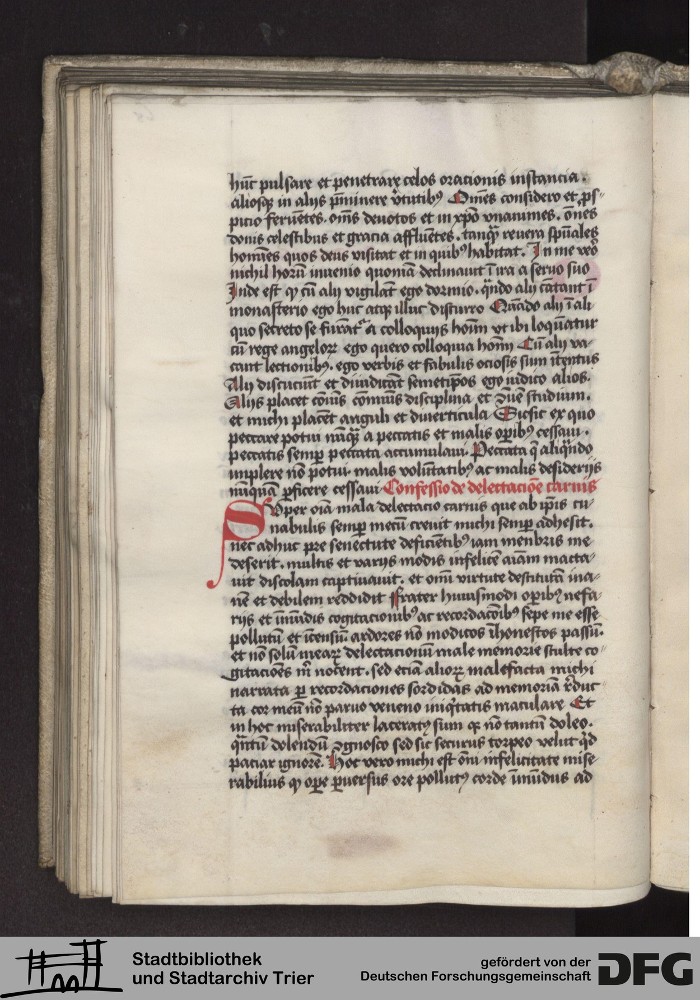 hūc pulsare et penetrare celos oracionis instancia.
aliosqꝫ in alijs p̄minere v̓tutibꝰ Om̄es considero et ꝓs-
picio feruētes. om̄s deuotos et in xp̄o vnanimes. om̄es
donis celestibus et gracia affluētes. tanq̄ʒ reuera sp̄uales
homīes quos deus visitat et in quibꝰ habitat. In me v̓o
nichil horū inuenio quoniā declinauit ī ira a seruo suo
Inde est ꝙ cū alij vigilāt ego dormio. qn̄do alij cātant ī
monasterio ego huc atqꝫ illuc discurro Quādo alij ī ali
quo secreto se furāt᷑ a colloquijs hoīm vt ibi loquātur
cū rege angeloꝝ ego quero colloquia hoīm Cū alij va-
cant lectionibꝰ. ego verbis et fabulis ociosis sum ītentus
Alij discuciūt et diiudicāt semetip̄os ego iudico alios.
Alijs placet cōuis cōmūis disciplina et studium.
et michi placēt anguli et diuerticula Sicsit ex quo
peccare potui nūqʒ a peccatis et malis oꝑibꝰ cessaui.
peccatis semꝑ peccata accumulaui. Peccata q̄ aliqn̄do
implere nō potui. malis volūtatibꝰ ac malis desiderijs
nūquā ꝑficere cessaui Confessio de delectacōe carnis
Super oīa mala delectacio carnis que ab ip̄is cu-
nabulis semꝑ mecū creuit michi semꝑ adhesit.
nec adhuc pre senectute deficiētibꝰ iam menbris me
deserit. multis et varijs modis infelicē aīam macta-
uit discolam captiuauit. et om̄i virtute destitutā ina-
nē et debilem reddidit Frater huiusmodi oꝑibꝰ nefa-
rijs et īmūdis cogitacionibꝰ ac recordacōibꝰ sepe me esse
pollutū et īcensū ardores nō modicos īhonestos passū.
et nō solū meaꝝ delectacionū male memorie stulte co-
gitacōes m̄ nocent. sed eciā alioꝝ malefacta michi
narrata ꝑ recordaciones sordidas ad memoriā r̓duc-
ta cor meū nō paruo veneno iniq̄tatis maculare Et
in hoc miserabiliter laceratꝰ sum qꝛ nō tantū doleo.
q̄ntū dolendū ꝯgnosco sed sic securus torpeo velut q̄d
paciar ignorē. Hoc vero michi est om̄i infelicitate mise-
rabilius ꝙ oꝑe ꝑuersus ore pollutꝰ corde īmūdus ad
Stadtbibliothek
und Stadtarchiv Trier
gefördert von der
Deutschen Forschungsgemeinschaft
DFG